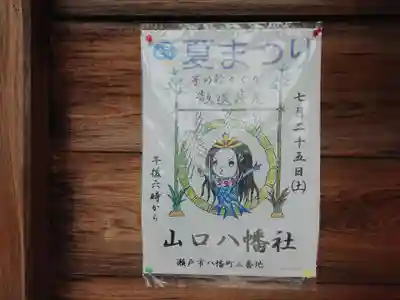 夏まつり
茅の輪くぐり
七月二十五日(土)
午後六時から
山口八幡社
瀬戸市八幡町二番地